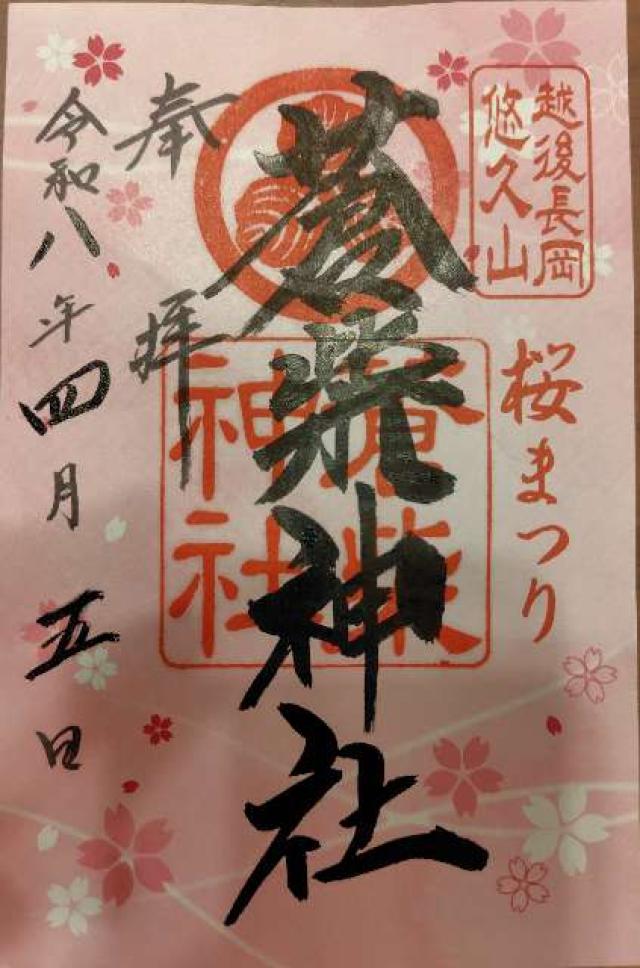 越後長岡
悠久山
桜まつり
蒼柴神社
蒼柴
神社
奉拝
令和八年四月五日